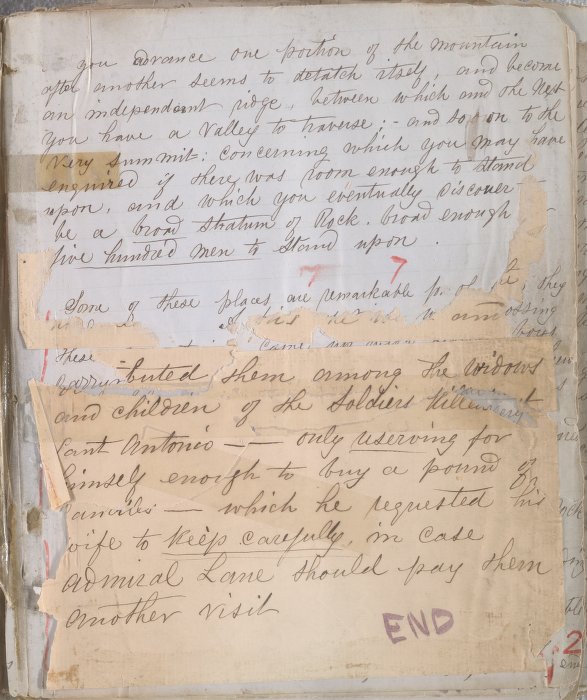 you advance one portion of the mountain
after another seems to detatch itself, and become
an independent ridge, between which and the Next
you have a Valley to traverse; - and so on to the
very summit: concerning which you may have
enquired if there was room enough to Stand
upon, and which you eventually discover
be a broad stratum of Rock. broad enough
five hundred men to Stand upon.
7 7
Some of these places are remarkable they
these
buted them among the widows
and children of the Soldiers Killed
Sant Antonio — — only userving for
himself enough to buy a pound of
Candles — which he requested his
wife to keep carefully, in case
admiral Lane should pay them
another visit
END
2